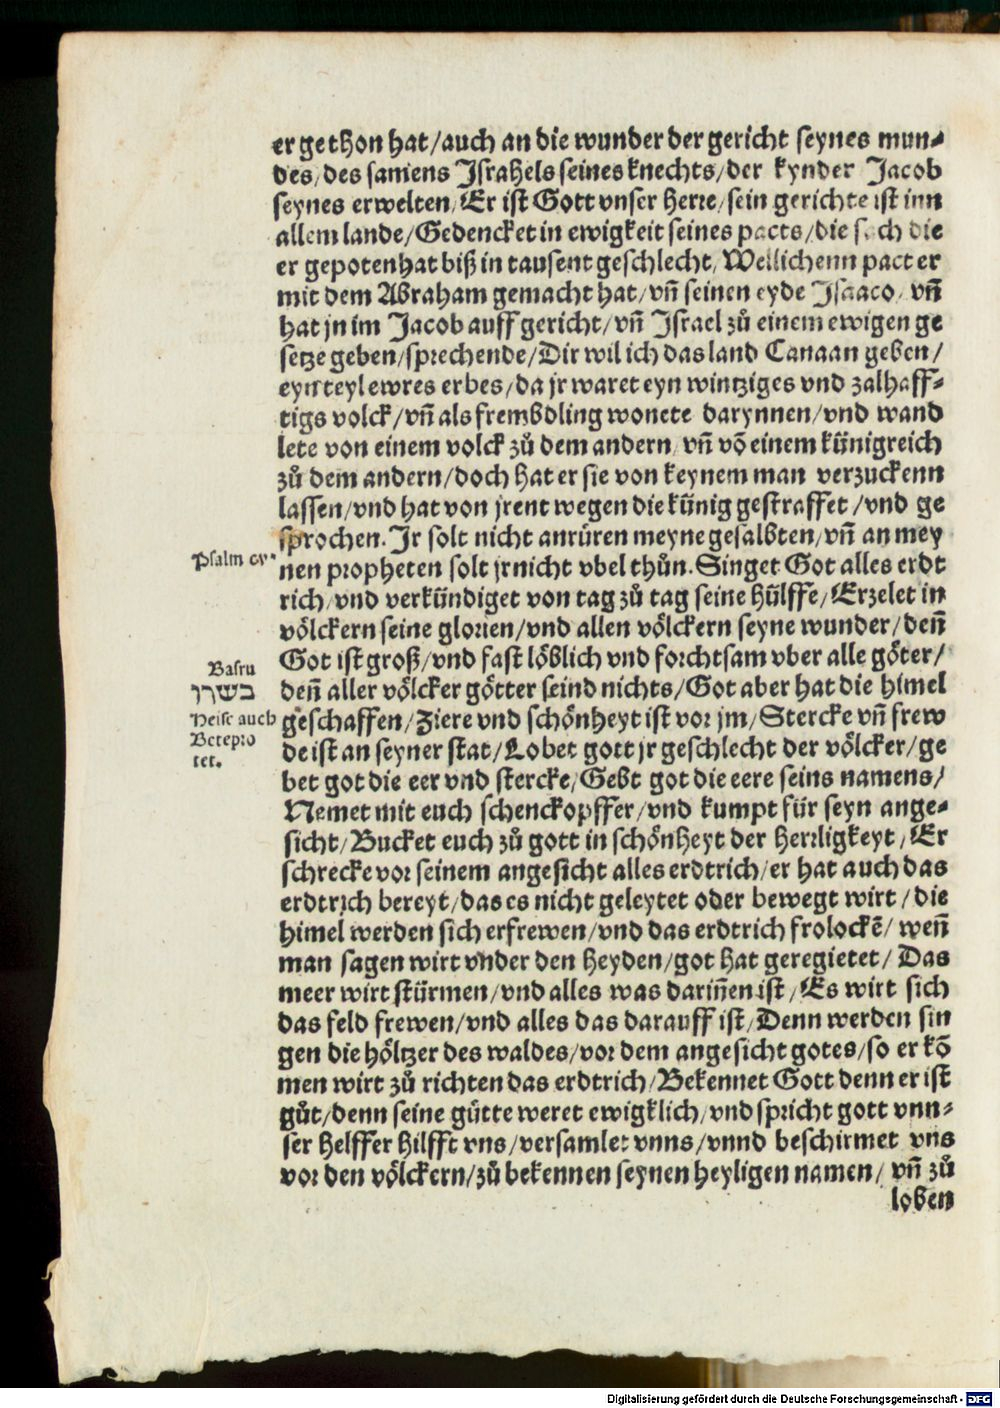 er gethon hat/auch an die wunder der gericht seynes mun⸗
des/des samens Jsrahels seines knechts/der kynder Jacob
seynes erwelten/Er ist Gott vnser herre/sein gerichte ist inn
allem lande/Gedencket in ewigkeit seines pacts/die die
er gepoten hat biß in tausent geschlecht/Wellichenn pact er
mit dem Abraham gemacht hat/vñ seinen eyde Jsaaco/vñ
hat jn im Jacob auff gericht/vñ Jsrael zů einem ewigen ge
setze geben/sprechende/Dir wil ich das land Canaan geben/
eyn teyl ewres erbes/da jr waret eyn wintziges vnd zalhaff⸗
tigs volck/vñ als frembdling wonete darynnen/vnd wand
lete von einem volck zů dem andern/vñ võ einem künigreich
zů dem andern/doch hat er sie von keynem man verzuckenn
lassen/vnd hat von jrent wegen die künig gestraffet/vnd ge
sprochen. Jr solt nicht anrüren meyne gesalbten/vñ an mey
Psalm cv.
nen propheten solt jr nicht vbel thůn. Singet Got alles erdt
rich/vnd verkündiget von tag zů tag seine hülffe/Erzelet in
völckern seine glorien/vnd allen völckern seyne wunder/deñ
Got ist groß/vnd fast löblich vnd forchtsam vber alle göter/
Basru
בשרו
Heisc auch
Betepro
tet.
deñ aller völcker götter seind nichts/Got aber hat die himel
geschaffen/Ziere vnd schönheyt ist vor jm/Stercke vñ frew
de ist an seyner stat/Lobet gott jr geschlecht der völcker/ge
bet got die eer vnd stercke/Gebt got die eere seins namens/
Nemet mit euch schenckopffer/vnd kumpt für seyn ange⸗
sicht/Bucket euch zů gott in schönheyt der herrligkeyt/Er
schrecke vor seinem angesicht alles erdtrich/er hat auch das
erdtrich bereyt/das es nicht geleytet oder bewegt wirt/die
himel werden sich erfrewen/vnd das erdtrich frolockē/weñ
man sagen wirt vnder den heyden/got hat geregietet/Das
meer wirt stürmen/vnd alles was dariñen ist/Es wirt sich
das feld frewen/vnd alles das darauff ist/Denn werden sin
gen die höltzer des waldes/vor dem angesicht gotes/so er kõ
men wirt zů richten das erdtrich/Bekennet Gott denn er ist
gůt/denn seine gütte weret ewigklich/vnd spricht gott vnn⸗
ser helffer hilfft vns/versamlet vnns/vnnd beschirmet vns
vor den völckern/zů bekennen seynen heyligen namen/vñ zů
loben
Digitalisierung gefördert durch die Deutsche Forschungsgemeinschaft - DFG